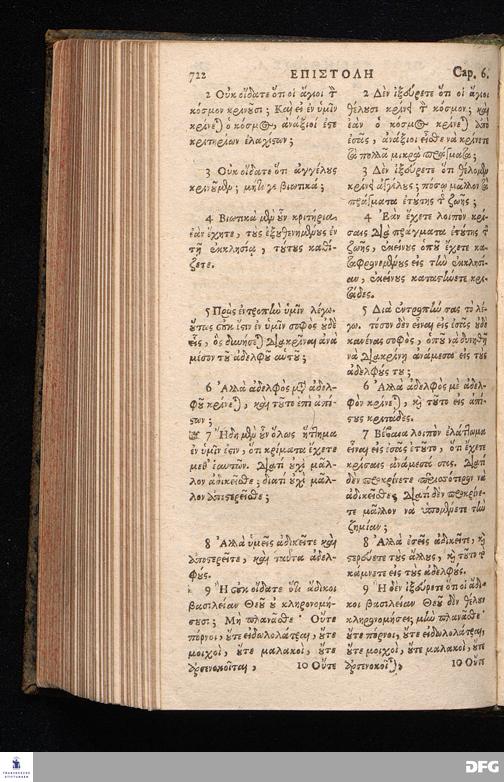 722
ΕΠΙΣΤΟΛΗ
Cap. 6.
2 Οὐκ οἴδατε ὅτι οἱ ἅγιοι τὸν
κόσμον κρινοῦσι; Καὶ εἰ ἐν ὑμῖν
κρίνεται ὁ κόσμος, ἀνάξιοί ἐστε
κριτηρίων ἐλαχίστων;
3 Οὐκ οἴδατε ὅτι ἀγγέλους
κρινοῦμεν; μήτι γε βιωτικά;
4 Βιωτικὰ μὲν οὖν κριτήρια,
ἐὰν ἔχητε, τοὺς ἐξουθενημένους ἐν
τῇ ἐκκλησίᾳ, τούτους καθί-
ζετε.
5 Πρὸς ἐντροπὴν ὑμῖν λέγω.
οὕτως οὐκ ἔστιν ἐν ὑμῖν σοφὸς οὐδὲ
εἷς, ὃς δυνήσεται διακρῖναι ἀνὰ
μέσον τοῦ ἀδελφοῦ αὐτοῦ;
6 Ἀλλὰ ἀδελφὸς μετὰ ἀδελ-
φοῦ κρίνεται, καὶ τοῦτο ἐπὶ ἀπί-
στων;
7 Ἤδη μὲν οὖν ὅλως ἥττημα
ἐν ὑμῖν ἐστιν, ὅτι κρίματα ἔχετε
μεθ' ἑαυτῶν. Διατί οὐχὶ μᾶλ-
λον ἀδικεῖσθε; διατί οὐχὶ μᾶλ-
λον ἀποστερεῖσθε;
8 Ἀλλὰ ὑμεῖς ἀδικεῖτε καὶ
ἀποστερεῖτε, καὶ ταῦτα ἀδελ-
φούς.
9 Ἢ οὐκ οἴδατε ὅτι ἄδικοι
βασιλείαν Θεοῦ οὐ κληρονομή-
σουσι; Μὴ πλανᾶσθε· Οὔτε
πόρνοι, οὔτε εἰδωλολάτραι, οὔτε
μοιχοὶ, οὔτε μαλακοὶ, οὔτε
ἀρσενοκοῖται,
10 Οὔτε
2 Δὲν ἰξεύρετε ὅτι οἱ ἅγιοι
θέλουσι κρίνῃ τὸν κόσμον; καὶ
ἐὰν ὁ κόσμος κρίνεται ἀπὸ
ἐσᾶς, ἀνάξιοι εἶσθε νὰ κρίνετε
τὰ πολλὰ μικρὰ πράγματα;
3 Δὲν ἰξεύρετε ὅτι θέλομεν
κρίνῃ ἀγγέλους; πόσῳ μᾶλλον τὰ
πράγματα ἐτούτης τῆς ζωῆς;
4 Ἐὰν ἔχετε λοιπὸν κρί-
σαις διὰ πράγματα ἐτούτης τῆς
ζωῆς, ἐκείνους ὁποῦ ἔχετε κα-
ταφρονεμένους εἰς τὴν ἐκκλησί-
αν, ἐκείνους καταστήσετε κρι-
τάδες.
5 Διὰ ἐντροπήν σας τὸ λέ-
γω. τόσον δὲν εἶναι εἰς ἐσᾶς οὐδὲ
κανένας σοφὸς, ὁποῦ νὰ δυνηθῇ
νὰ διακρίνῃ ἀνάμεσα εἰς τοὺς
ἀδελφούς του;
6 Ἀλλὰ ἀδελφὸς μὲ ἀδελ-
φὸν κρίνεται, καὶ τοῦτο εἰς ἀπί-
στους κριτάδες.
7 Βέβαια λοιπὸν ἐλάττωμα
εἶναι εἰς ἐσᾶς ἐτοῦτο, ὅτι ἔχετε
κρίσαις ἀνάμεσά σας. Διατί
δὲν προκρίνετε προτιότερον νὰ
ἀδικεῖσθε; Διατί δὲν προκρίνε-
τε μᾶλλον νὰ ὑπομένετε τὴν
ζημίαν;
8 Ἀλλὰ ἐσεῖς ἀδικεῖτε, καὶ
στερεύετε τοὺς ἄλλους, καὶ τοῦτο τὸ
κάμνετε εἰς τοὺς ἀδελφούς.
9 Ἢ δὲν ἰξεύρετε ὅτι οἱ ἄδι-
κοι βασιλείαν Θεοῦ δὲν θέλουν
κληρονομήσει; μὴν πλανᾶσθε·
οὔτε πόρνοι, οὔτε εἰδωλολάτραι,
οὔτε μοιχοὶ, οὔτε μαλακοὶ, οὔτε
ἀρσενοκοῖται,
10 Οὔτε
DFG